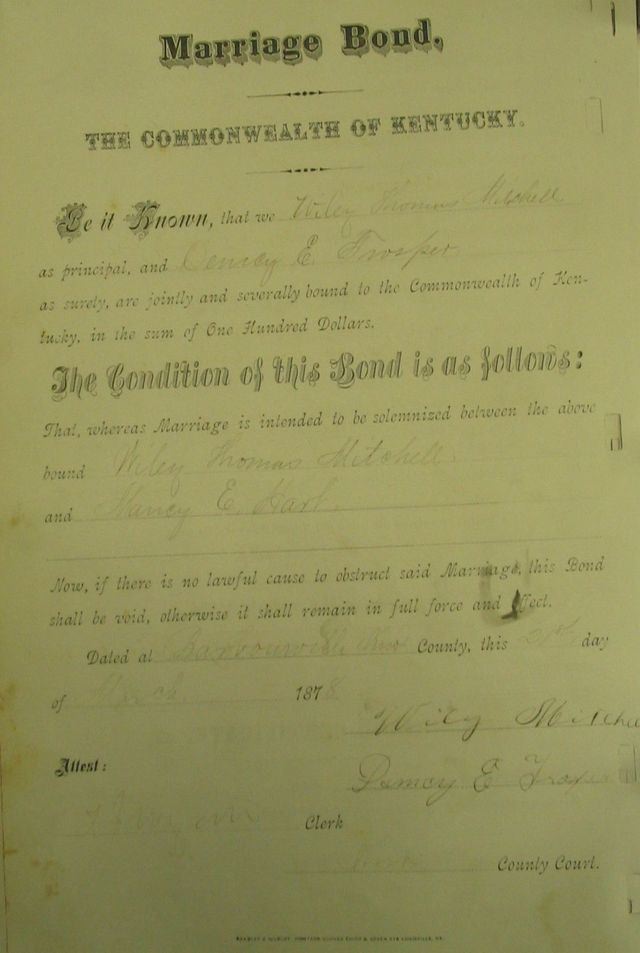 Marriage Bond.
THE COMMONWEALTH OF KENTUCKY.
Be it Known, that we Wiley Thomas Mitchell
as principal, and Demcy E. Trosper
as surety, are jointly and severally bound to the Commonwealth of Ken-
tucky, in the sum of One Hundred Dollars.
The Condition of this Bond is as follows:
That, whereas Marriage is intended to be solemnized between the above
bound Wiley Thomas Mitchell
and Nancy E. Harl
Now, if there is no lawful cause to obstruct said Marriage, this Bond
shall be void, otherwise it shall remain in full force and effect.
Dated at Barbourville Knox County, this day
of March 1878
Wily Mitchell
Attest:
Demcy E Trosper
Clerk
Knox County Court.